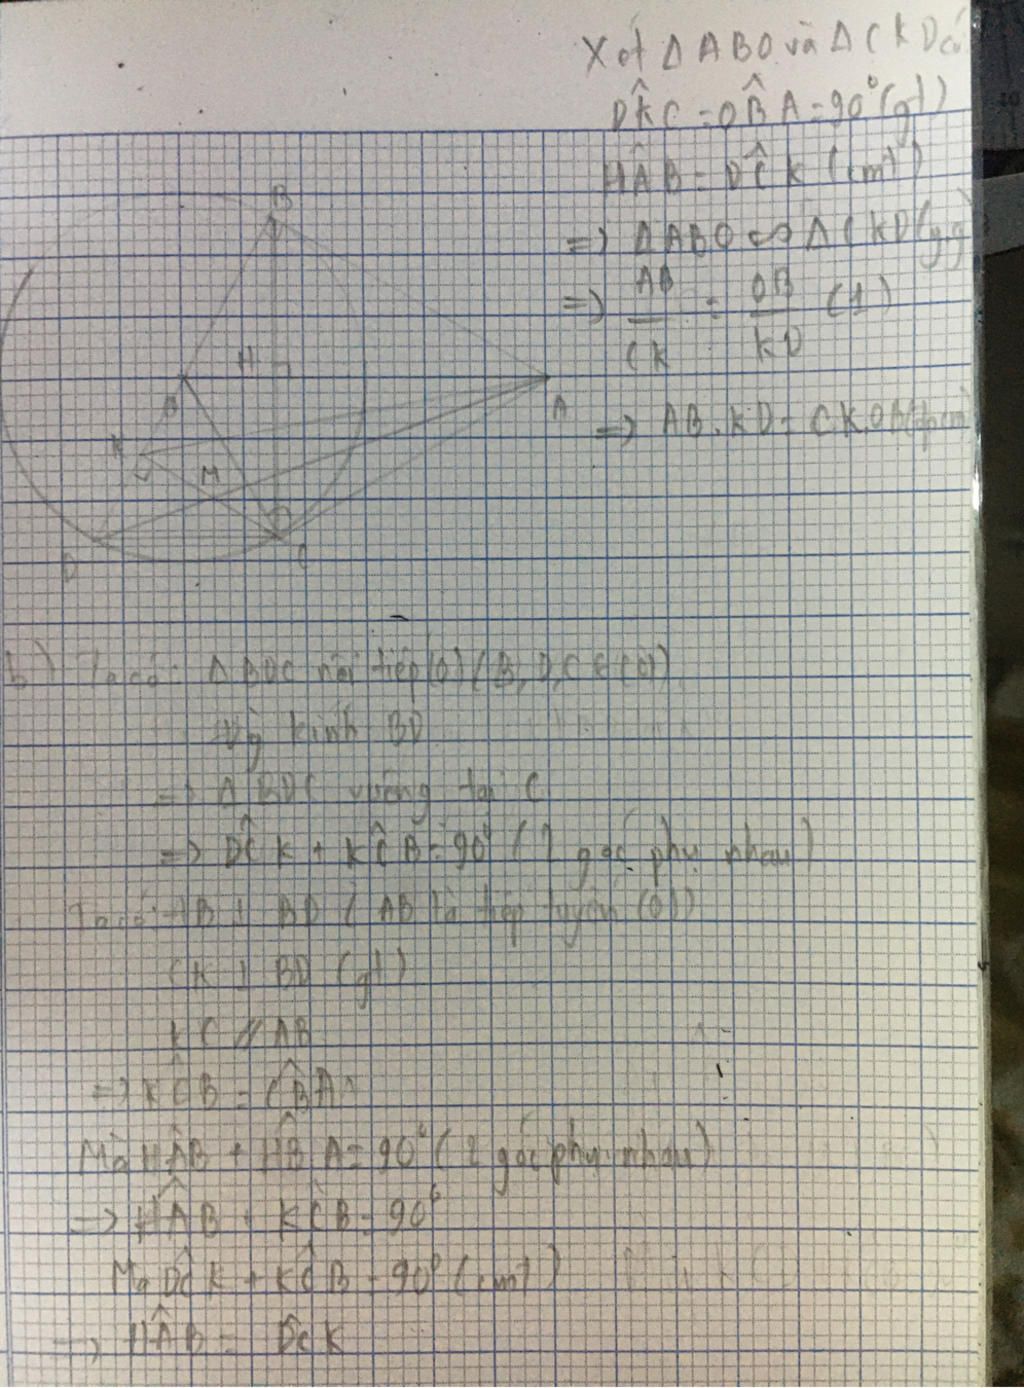 Xét Δ ABO và Δ CKD có
DK̂C = OB̂A = 90° (gt)
HÂB = DĈK (cmt)
=> Δ ABO ∽ Δ CKD (g.g)
=> AB/CK = OB/KD (1)
=> AB . KD = CK . OB (đpcm)
B
H
O
A
K
M
D
C
b) Ta có: Δ BDC nội tiếp (O) (B, D, C ∈ (O))
kính BD
=> Δ BDC vuông tại C
=> DĈK + KĈB = 90° (2 góc phụ nhau)
Ta có: AB ⊥ BD (AB là tiếp tuyến (O))
CK ⊥ BD (gt)
KC // AB
=> KĈB = CB̂A
Mà HÂB + HB̂A = 90° (2 góc phụ nhau)
=> HÂB + KĈB = 90°
Mà DĈK + KĈB = 90° (cmt)
=> HÂB = DĈK